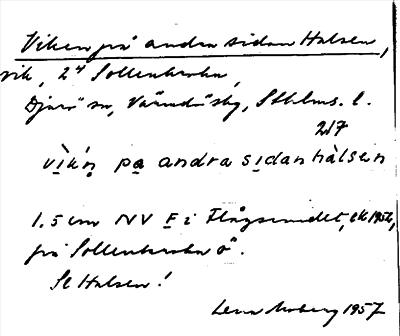 Viken på andra sidan Halsen,
vik, 2⁴ Sollenkroka,
Djurö sn, Värmdöskg, Sthlms. l.
217
vìkə́n pa andra sidan hàlsen
1.5 cm NV F i Flågsundet, ek 1956,
på Sollenkroka ö.
Se Halsen!
Lena Moberg 1957